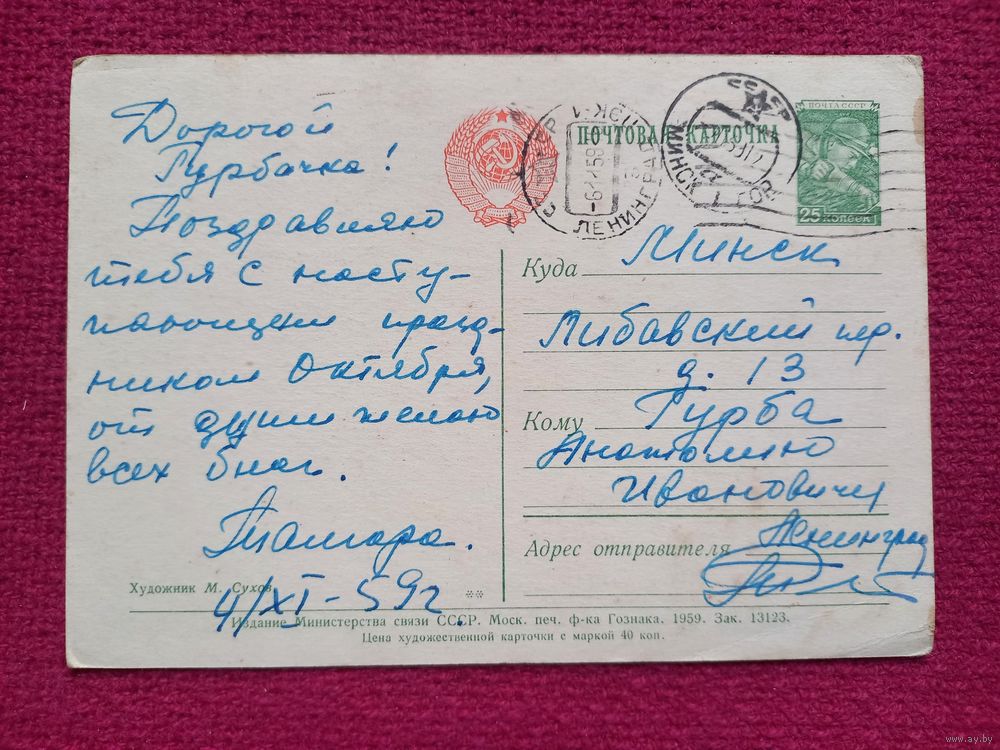 Дорогой
Гурбачка!
Поздравляю
тебя с насту-
пающим празд-
ником Октября,
от души желаю
всех благ.
Тамара.
4/XI-59г.
Художник М. Сухов
ПОЧТОВАЯ КАРТОЧКА
ЛЕНИНГРАД
МИНСК
ПОЧТА СССР
25 КОПЕЕК
Куда Минск
Либавский пер.
д. 13
Кому Гурба
Анатолию
Ивановичу
Адрес отправителя Ленинград
Издание Министерства связи СССР. Моск. печ. ф-ка Гознака. 1959. Зак. 13123.
Цена художественной карточки с маркой 40 коп.
www.ay.by